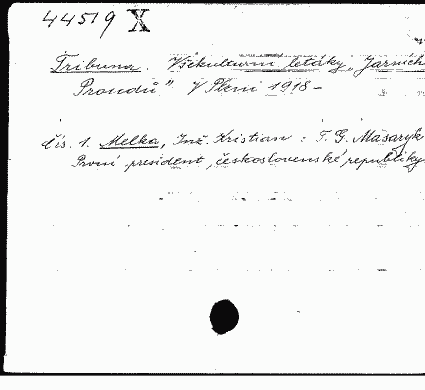 44519 X
Tribuna. Všekulturní letáky „Jarních
Proudů". V Plzni 1918 –
čís. 1. Melka, Inž. Kristian: T. G. Masaryk
První president „československé republiky